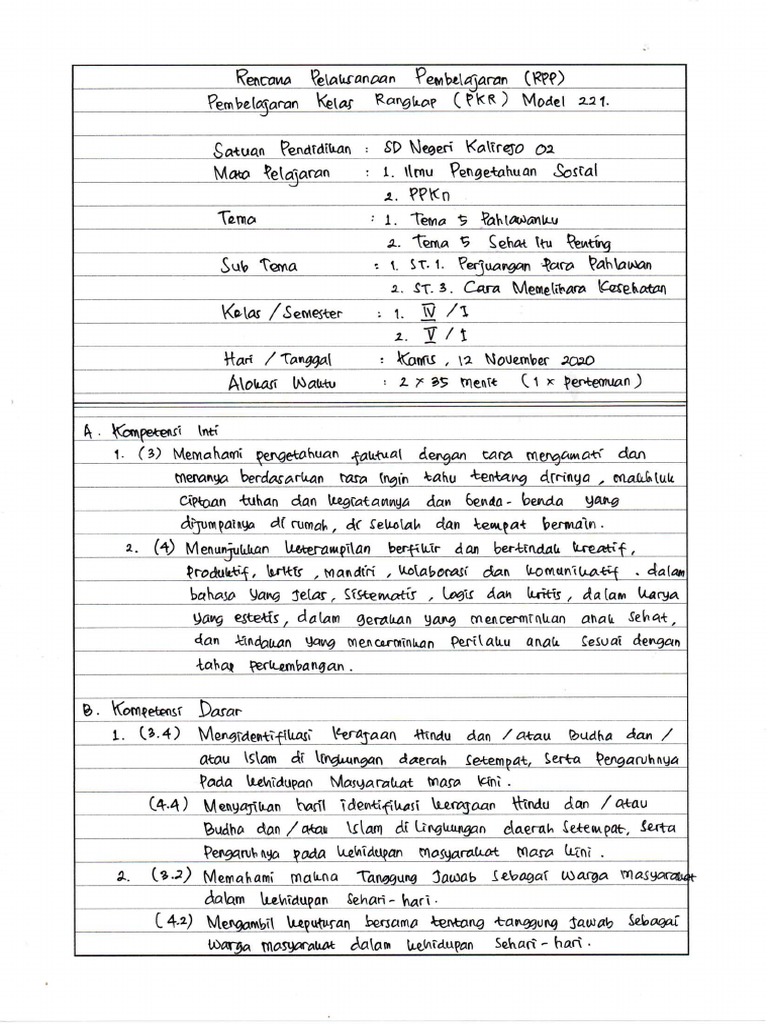 Rencana Pelaksanaan Pembelajaran (RPP)
Pembelajaran Kelas Rangkap (PKR) Model 221.
Satuan Pendidikan : SD Negeri Kalirejo 02
Mata Pelajaran : 1. Ilmu Pengetahuan Sosial
2. PPKn
Tema : 1. Tema 5 Pahlawanku
2. Tema 5 Sehat Itu Penting
Sub Tema : 1. ST.1. Perjuangan Para Pahlawan
2. ST.3. Cara Memelihara Kesehatan
Kelas / Semester : 1. IV / I
2. V / I
Hari / Tanggal : Kamis, 12 November 2020
Alokasi Waktu : 2 x 35 menit (1 x pertemuan)
A. Kompetensi Inti
1. (3) Memahami pengetahuan faktual dengan cara mengamati dan
menanya berdasarkan rasa ingin tahu tentang dirinya, makhluk
ciptaan tuhan dan kegiatannya dan benda-benda yang
dijumpainya di rumah, di sekolah dan tempat bermain.
2. (4) Menunjukkan keterampilan berfikir dan bertindak kreatif,
produktif, kritis, mandiri, kolaborasi dan komunikatif. dalam
bahasa yang jelas, sistematis, logis dan kritis, dalam karya
yang estetis, dalam gerakan yang mencerminkan anak sehat,
dan tindakan yang mencerminkan perilaku anak sesuai dengan
tahap perkembangan.
B. Kompetensi Dasar
1. (3.4) Mengidentifikasi kerajaan Hindu dan / atau Budha dan /
atau Islam di lingkungan daerah setempat, serta pengaruhnya
pada kehidupan masyarakat masa kini.
(4.4) Menyajikan hasil identifikasi kerajaan Hindu dan / atau
Budha dan / atau Islam di lingkungan daerah setempat, serta
pengaruhnya pada kehidupan masyarakat masa kini.
2. (3.2) Memahami makna tanggung jawab sebagai warga masyarakat
dalam kehidupan sehari-hari.
(4.2) Mengambil keputusan bersama tentang tanggung jawab sebagai
warga masyarakat dalam kehidupan sehari-hari.